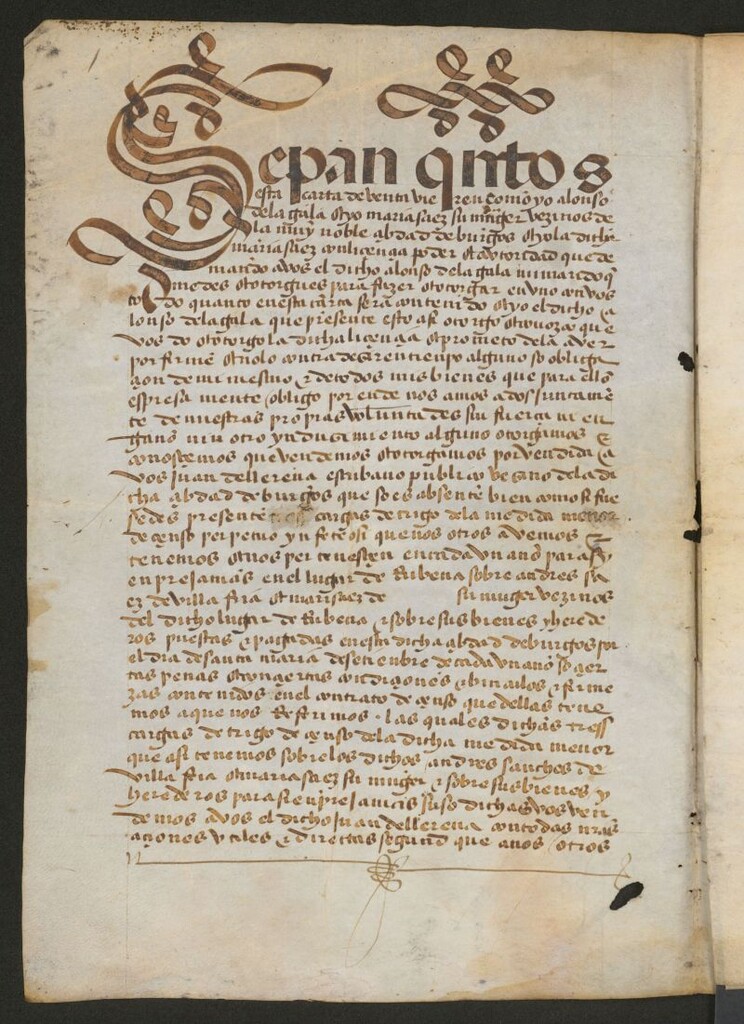 Sepan qntos
esta carta de venta vieren como yo alonso
de la gala & yo maria saez su muger vezinos de
la muy noble çibdad de burgos & yo la dicha
maria saez con liçençia poder & abtoridad que de
mando a vos el dicho alonso de la gala mi marido q
me des & otorgues para fazer & otorgar en vno con vos
to do quanto en esta carta sera contenido & yo el dicho a
lonso de la gala que presente esto asi otorgo & conozco que
vos do & otorgo la dicha liçençia & prometo de la aver
por firme & no lo contradesir en tienpo alguno so obliga
çion de mi mesmo & de todos mis bienes que para ello
espresa mente obligo por ende nos amos a dos junta men
te de nuestras propias voluntades sin fuerça ni en
gano ni otro ynduzimiento alguno otorgamos &
conosçemos que vendemos & otorgamos por vendida a
vos juan de llerena escribano publico vesino de la di
cha çibdad de burgos que soes absente bien como si fue
sedes presente tres cargas de trigo de la medida menor
de çenso perpetuo ynfeteosi que nos otros avemos &
tenemos & nos pertenesçen en cada vn año para si
enpre jamas en el lugar de Rubena sobre andres sa
ez de villa fria & mari saez de su muger vezinos
del dicho lugar de Rubena & sobre sus bienes y herede
ros puestas & pagadas en esta dicha çibdad de burgos por
el dia de santa maria de setienbre de cada vn año so çier
tas penas & con çiertas condiçiones & binculos & firme
zas contenidos en el contrato de çenso que dellas tene
mos a que nos Referimos. las quales dichas tres
cargas de trigo de çenso de la dicha medida menor
que asi tenemos sobre los dichos andres sanches de
villa fria & maria saez su muger & sobre sus bienes y
herederos para sienpre jamas suso dichas vos ven
demos a vos el dicho juan de llerena con todas nras
açiones vtiles & diretas segund que a nos otros